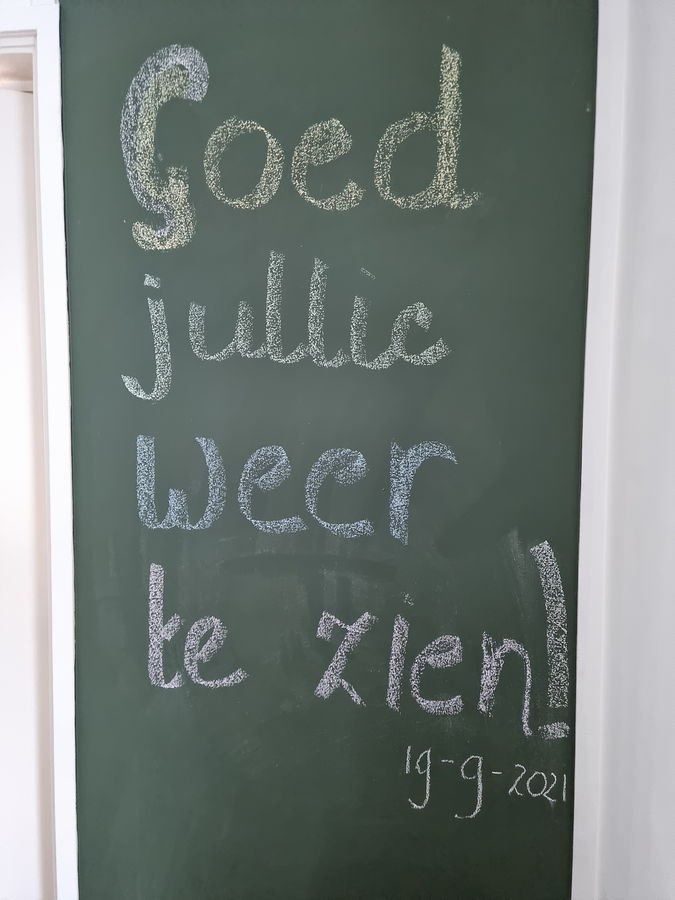 Goed
jullie
weer
te zien!
19-9-2021